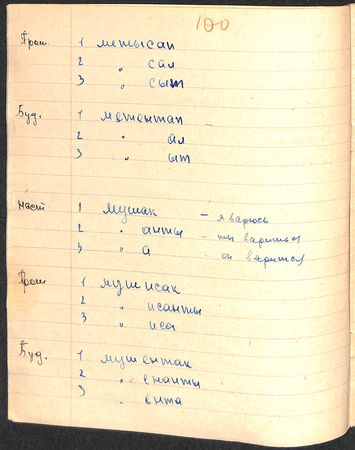 100
Прош. 1 метысап
2 " сал
3 " сыт
Буд. 1 метентап
2 " ал
3 " ыт
Наст 1 мушак - я варюсь
2 " анты - ты варишься
3 " а - он варится
Прош 1 мушисак
2 " исанты
3 " иса
Буд. 1 мушентак
2 " енанты
3 " ента